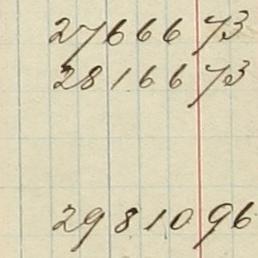 27666 73
28166 73
29810 96